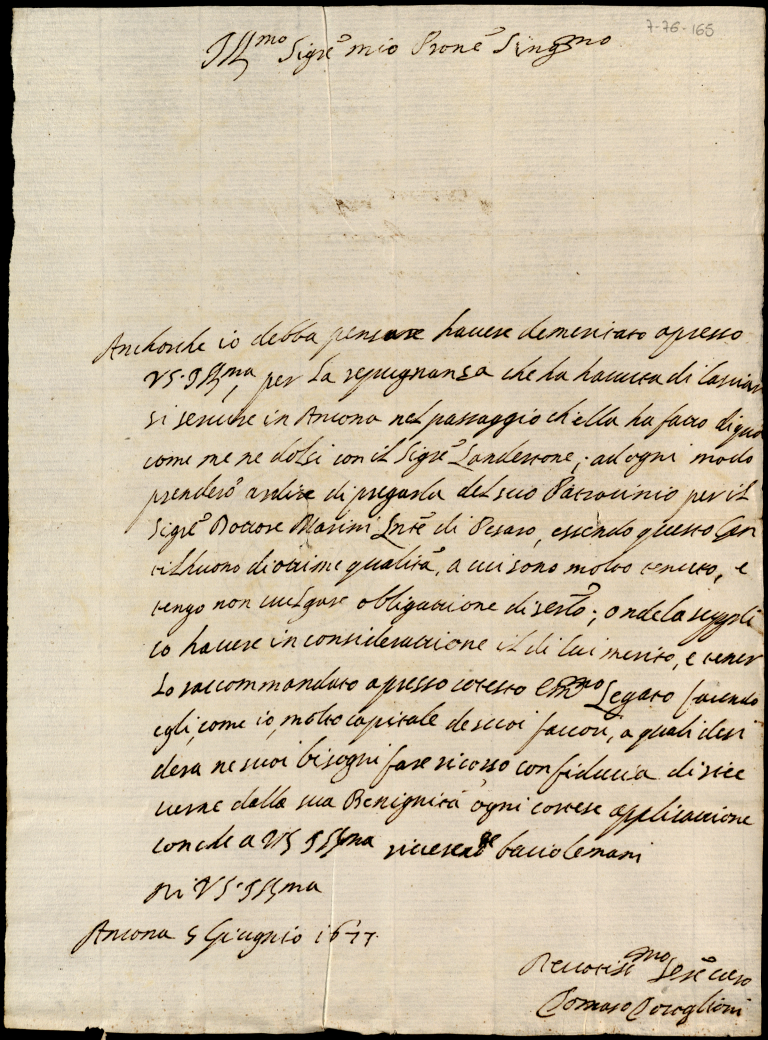 7-76-165
Ill.mo Sigre mio Prone Sing.mo
Anchorche io debba pensare hauere demeritato apresso
VS. Ill.ma, per la repugnansa che ha hauuta di lasciar
si seruire in Ancona nel passaggio ch'ella ha fatto di qua
come me ne dolsi con il Sigre Landestone; ad ogni modo
prenderò ardire di pregarla del suo Patrocinio per il
Sigre Dottore Marini di Pesaro, essendo questo Gen
til'huomo di ottime qualità, a cui sono molto tenuto, e
tengo non uulgare obligatione di; onde la suppli
co hauere in consideratione il di lui merito, e tener
lo raccommandato apresso cotesto Em.mo Legato facendo
egli, come io, molto capitale de suoi fauori, a quali desi
dera ne suoi bisogni fare ricorso con fiducia di rice
uerne dalla sua Benignità ogni cortese applicatione
con che a VS Ill.ma bacio le mani
Di VS. Ill.ma
Ancona 5 Giugnio 1677
Deuotis.mo Sere uero
Tomaso